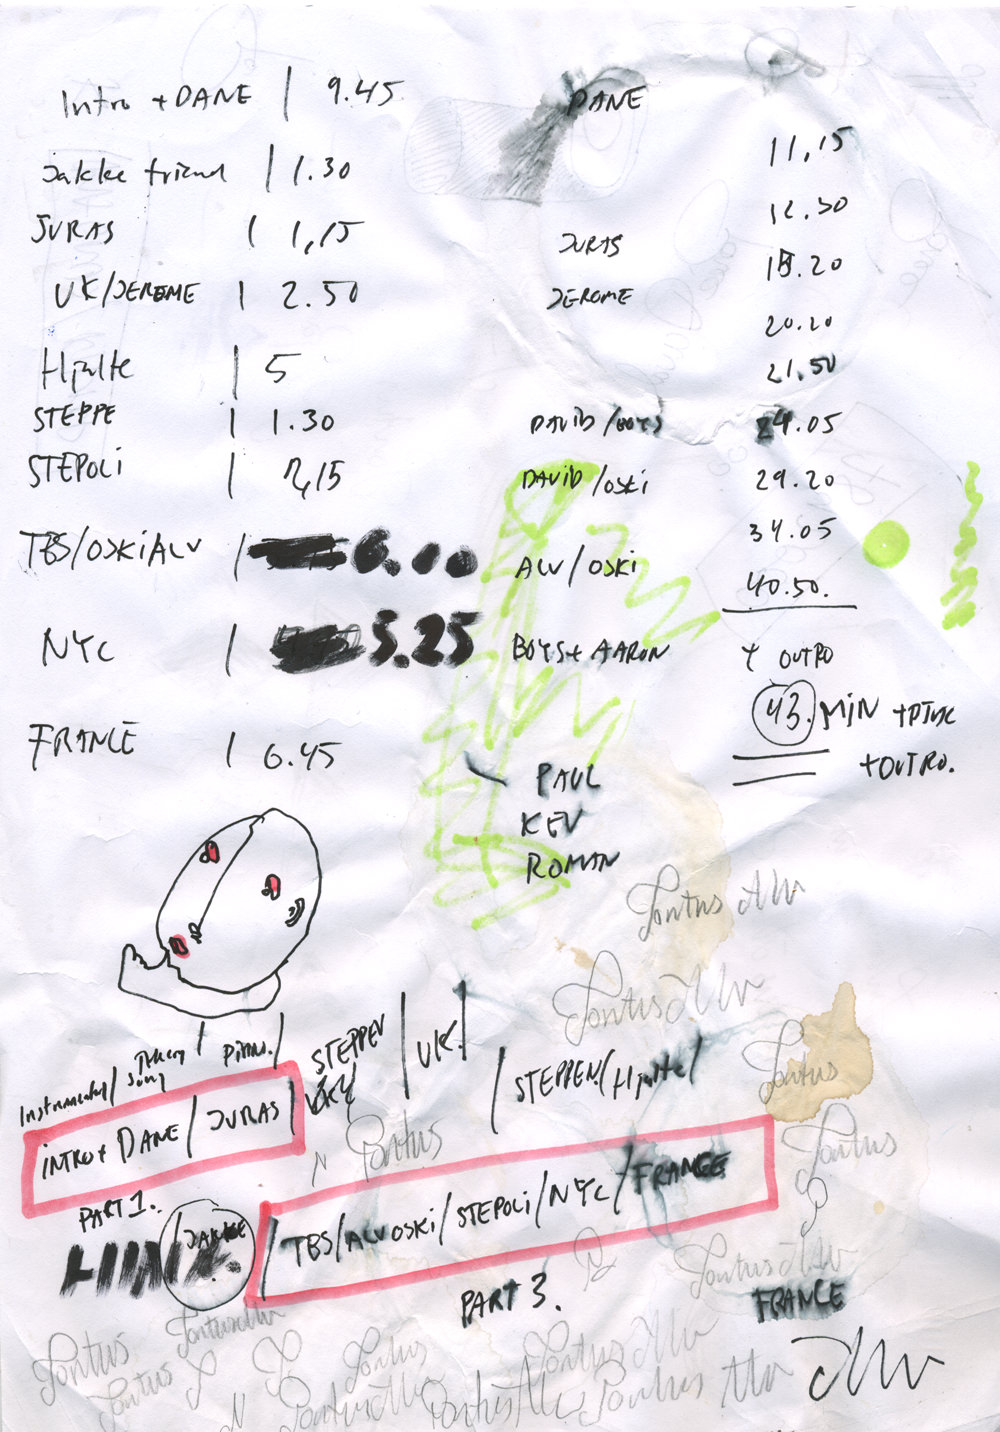 Intro + DANE | 9.45
Jakke friend | 1.30
JURAS | 1,15
UK/JEROME | 2.50
Hjalte | 5
STEPPE | 1.30
STEPOLI | 2,15
TBS/OSKI/ALV | 6.00
NYC | 5.25
FRANCE | 6.45
DANE
11,15
12.30
JURAS
15.20
JEROME
20.20
21.50
DAVID/BOYS 24.05
DAVID/OSKI 29.20
34.05
ALV/OSKI
40.50.
BOYS + AARON + OUTRO
43. MIN
+OUTRO.
PAUL
KEV
ROMAN
Pontus
Pontus
Pontus
STEPPEN | UK. |
STEPPEN/Hjalte/
song
INTRO + DANE / JURAS
Pontus
Pontus
PART 1.
JAKKE
TBS/ALV OSKI/STEPOLI/NYC/FRANCE
PART 3.
Pontus
FRANCE
Pontus
Pontus
Pontus
Pontus
Pontus
Pontus
Pontus
Pontus